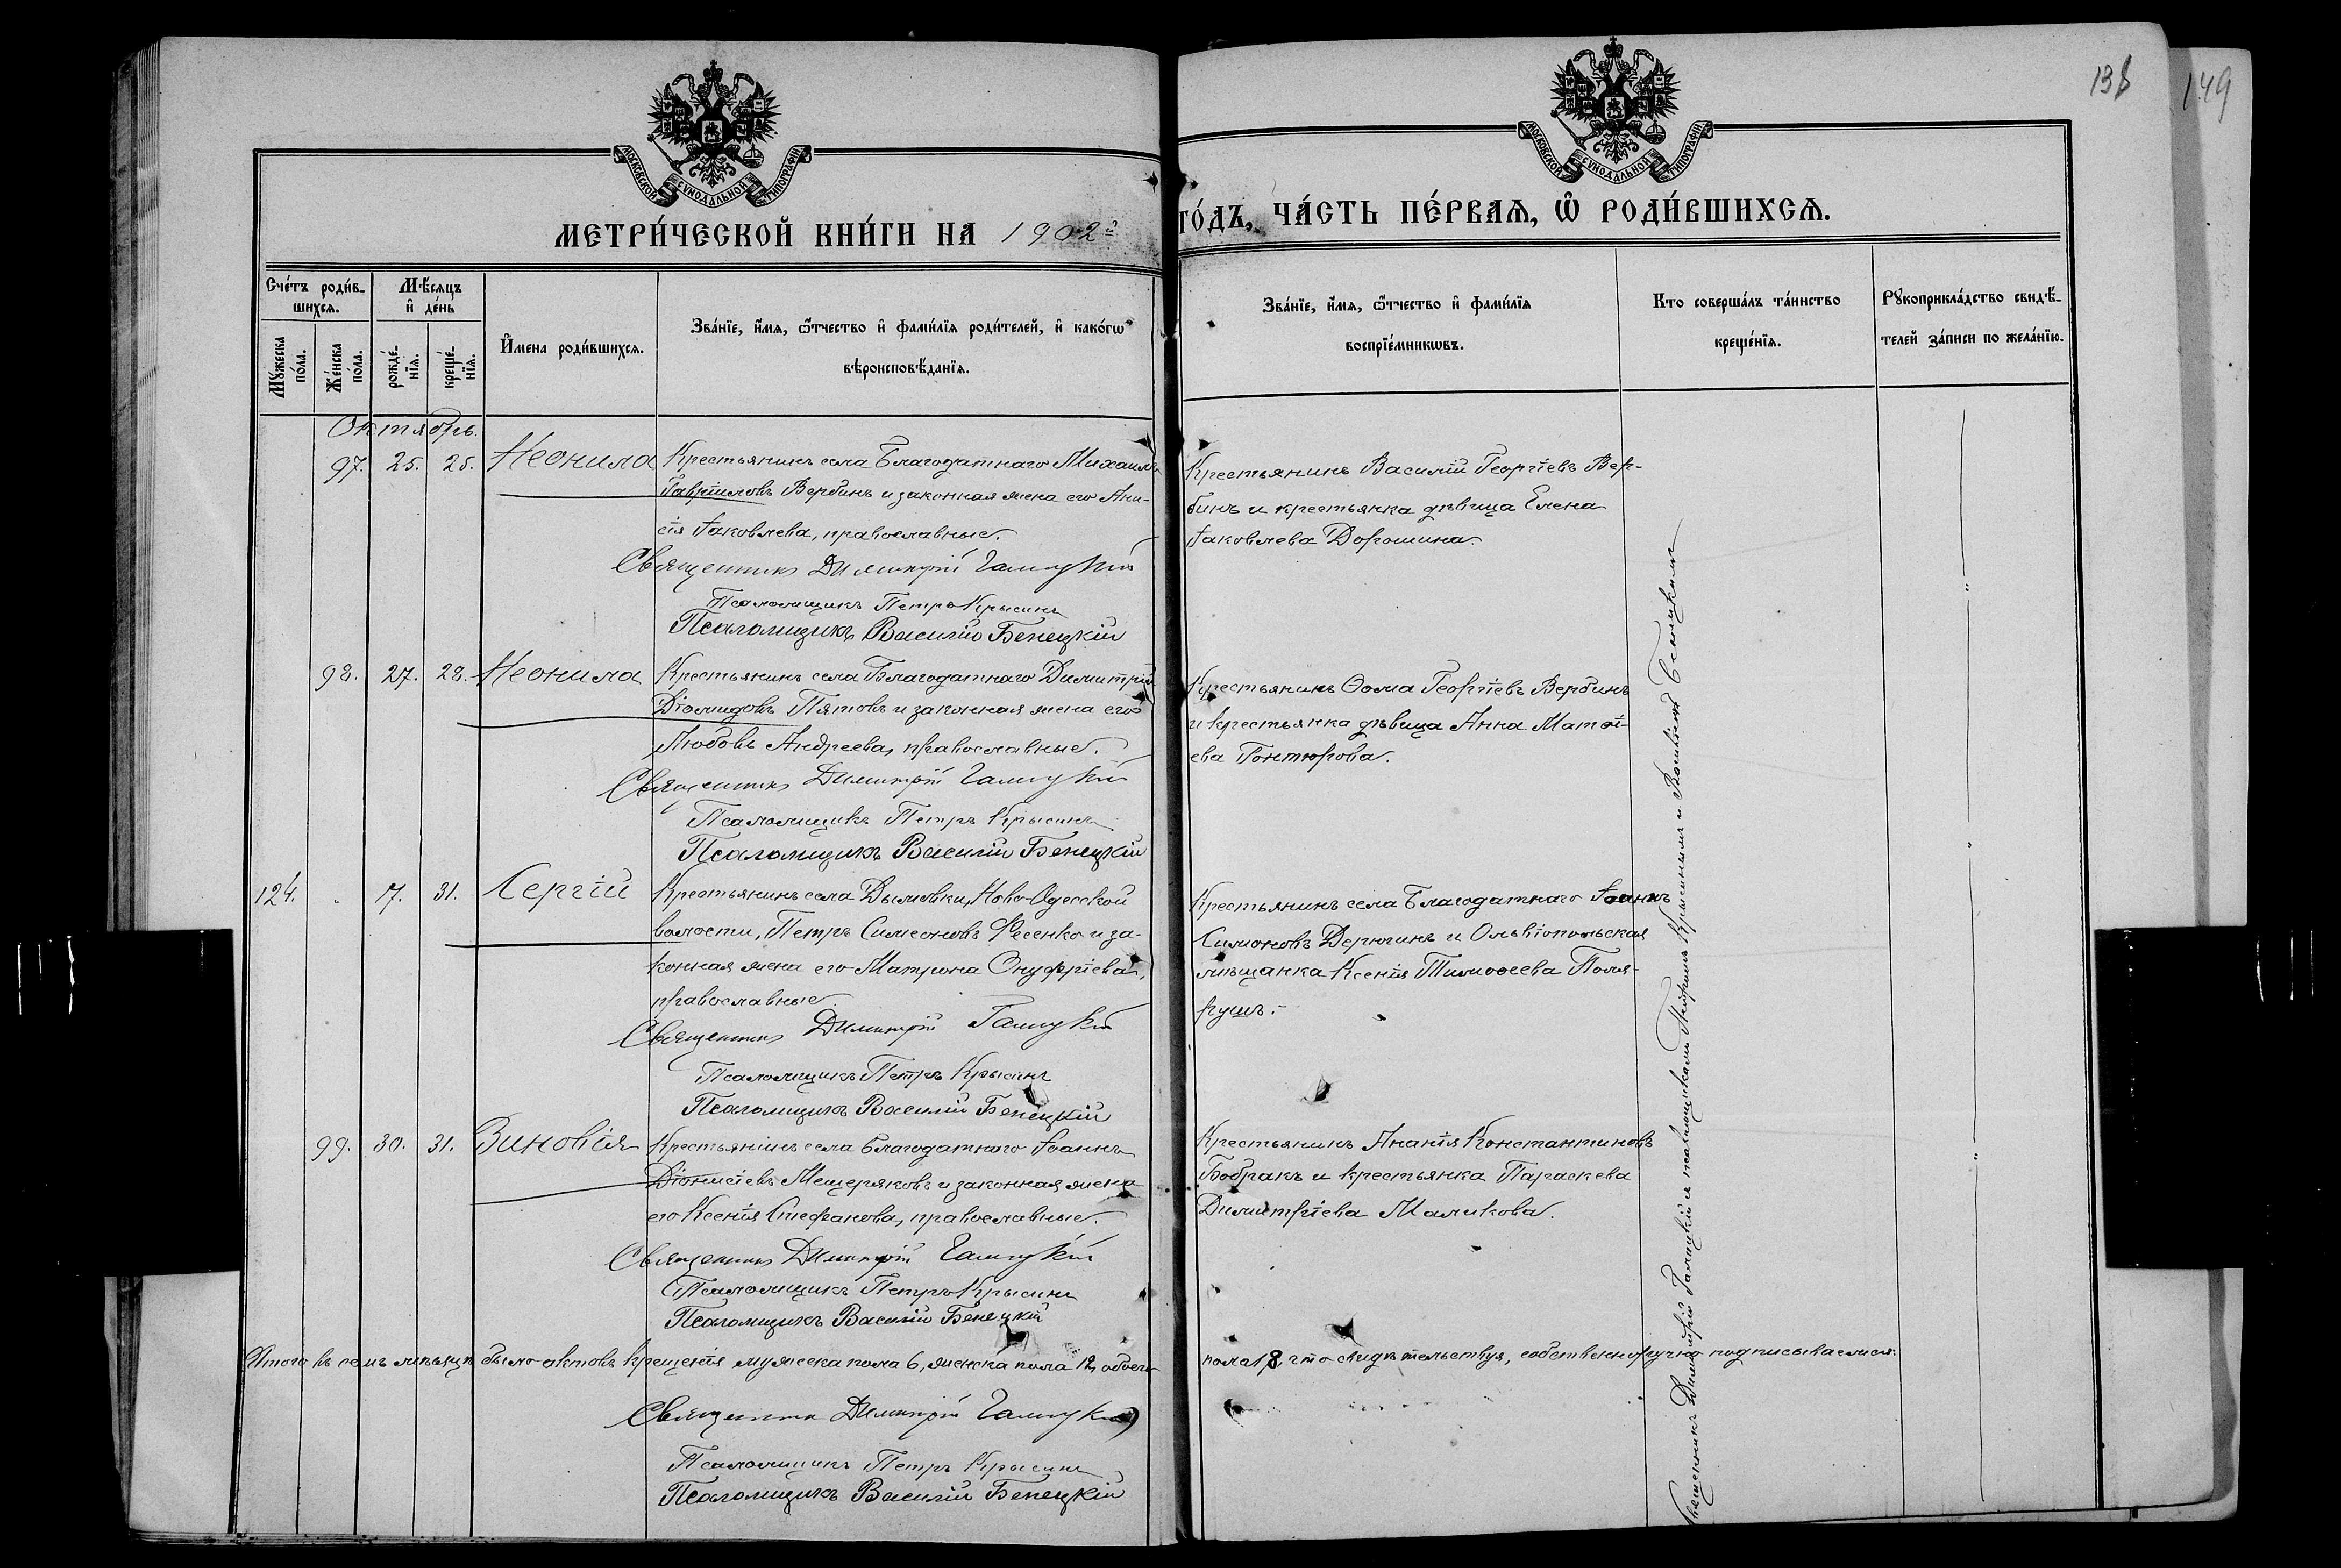 138
149
МОСКОВСКОЙ СѴНОДАЛЬНОЙ ТИПОГРАФІИ
МОСКОВСКОЙ СѴНОДАЛЬНОЙ ТИПОГРАФІИ
МЕТРИ́ЧЕСКОЙ КНИ́ГИ НА 1902й
ГО́ДЪ, ЧА́СТЬ ПЕ́РВАѦ, Ѽ РОДИ́ВШИХСѦ.
Сче́тъ роди́в-
шихсѧ.
Мꙋ́жеска по́ла.
Же́нска по́ла.
Мѣ́сяцъ
и҆ де́нь
рожде́-нїѧ.
креще́-нїѧ.
И҆мена роди́вшихсѧ.
Зва́нїе, и҆́мѧ, ѻ҆́тчество и҆ фами́лїѧ роди́телей, и҆ како́гѡ
вѣроисповѣ́данїѧ.
Зва́нїе, и҆́мѧ, ѻ҆́тчество и҆ фами́лїѧ
воспрїе́мникѡвъ.
Кто соверша́лъ та́инство
креще́нїѧ.
Рꙋкоприкла́дство свидѣ́-
телей за́писи по жела́нїю.
Октябрь.
97. 25. 25. Неонила Крестьянинъ села Благодатнаго Михаилъ
Гавріиловъ Вербинъ и законная жена его Ани-
сія Іаковлева, православные.
Священникъ Димитрій Галицкій
Псаломщикъ Петръ Крысинъ
Псаломщикъ Василій Бенецкій
Крестьянинъ Василій Георгіевъ Вер-
бинъ и крестьянка дѣвица Елена
Іаковлева Дорошина.
98. 27. 28. Неонила Крестьянинъ села Благодатнаго Димитрій
Діомидовъ Пятовъ и законная жена его
Любовь Андреева, православные.
Священникъ Димитрій Галицкій
Псаломщикъ Петръ Крысинъ
Псаломщикъ Василій Бенецкій
Крестьянинъ Ѳома Георгіевъ Вербинъ
и крестьянка дѣвица Анна Матѳі-
ева Гонтюрова.
124. 17. 31. Сергій Крестьянинъ села Дымовки, Ново-Одесской
волости, Петръ Симеоновъ Фесенко и за-
конная жена его Матрона Онуфріева,
православные.
Священникъ Димитрій Галицкій
Псаломщикъ Петръ Крысинъ
Псаломщикъ Василій Бенецкій
Крестьянинъ села Благодатнаго Іоаннъ
Симоновъ Дерюгинъ и Ольвіопольская
мѣщанка Ксенія Тимоѳеева Поля-
рушъ.
99. 30. 31. Зиновія Крестьянинъ села Благодатнаго Іоаннъ
Діонисіевъ Мещеряковъ и законная жена
его Ксенія Стефанова, православные.
Священникъ Димитрій Галицкій
Псаломщикъ Петръ Крысинъ
Псаломщикъ Василій Бенецкій
Крестьянинъ Ананія Константиновъ
Бобракъ и крестьянка Параскева
Димитріева Маликова.
Священникъ Димитрій Галицкій и псаломщиками Петромъ Крысинымъ и Василіемъ Бенецкимъ
Итого въ семъ мѣсяцѣ было актовъ крещенія мужеска пола 6, женска пола 12, обоего
пола 18, что свидѣтельствуя, собственноручно подписываемся:
Священникъ Димитрій Галицкій
Псаломщикъ Петръ Крысинъ
Псаломщикъ Василій Бенецкій